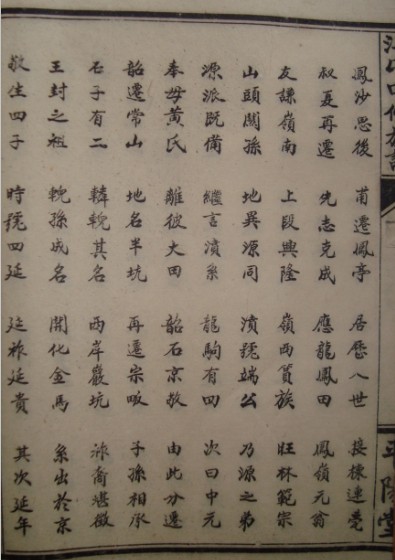 鳳沙思後 甫遷鳳亭 居歷八世 接棟連甍
叔夏再遷 先志克成 應龍鳳田 鳳嶺元翁
友諒嶺南 上段興隆 嶺西貫族 旺林範宗
山頭關孫 地異源同 濆號端公 乃源之弟
源派既備 繼言濆系 龍駒有四 次曰中元
奉母黃氏 離彼大田 韶石京敬 由此分遷
韶遷常山 地名半坑 再遷宗畈 子孫相承
石子有二 轔輗其名 西岸巖坑 裔堪徵
王封之祖 輗孫成名 開化金馬 系出於京
敬生四子 時號四延 延祚延貴 其次延年
平陽堂